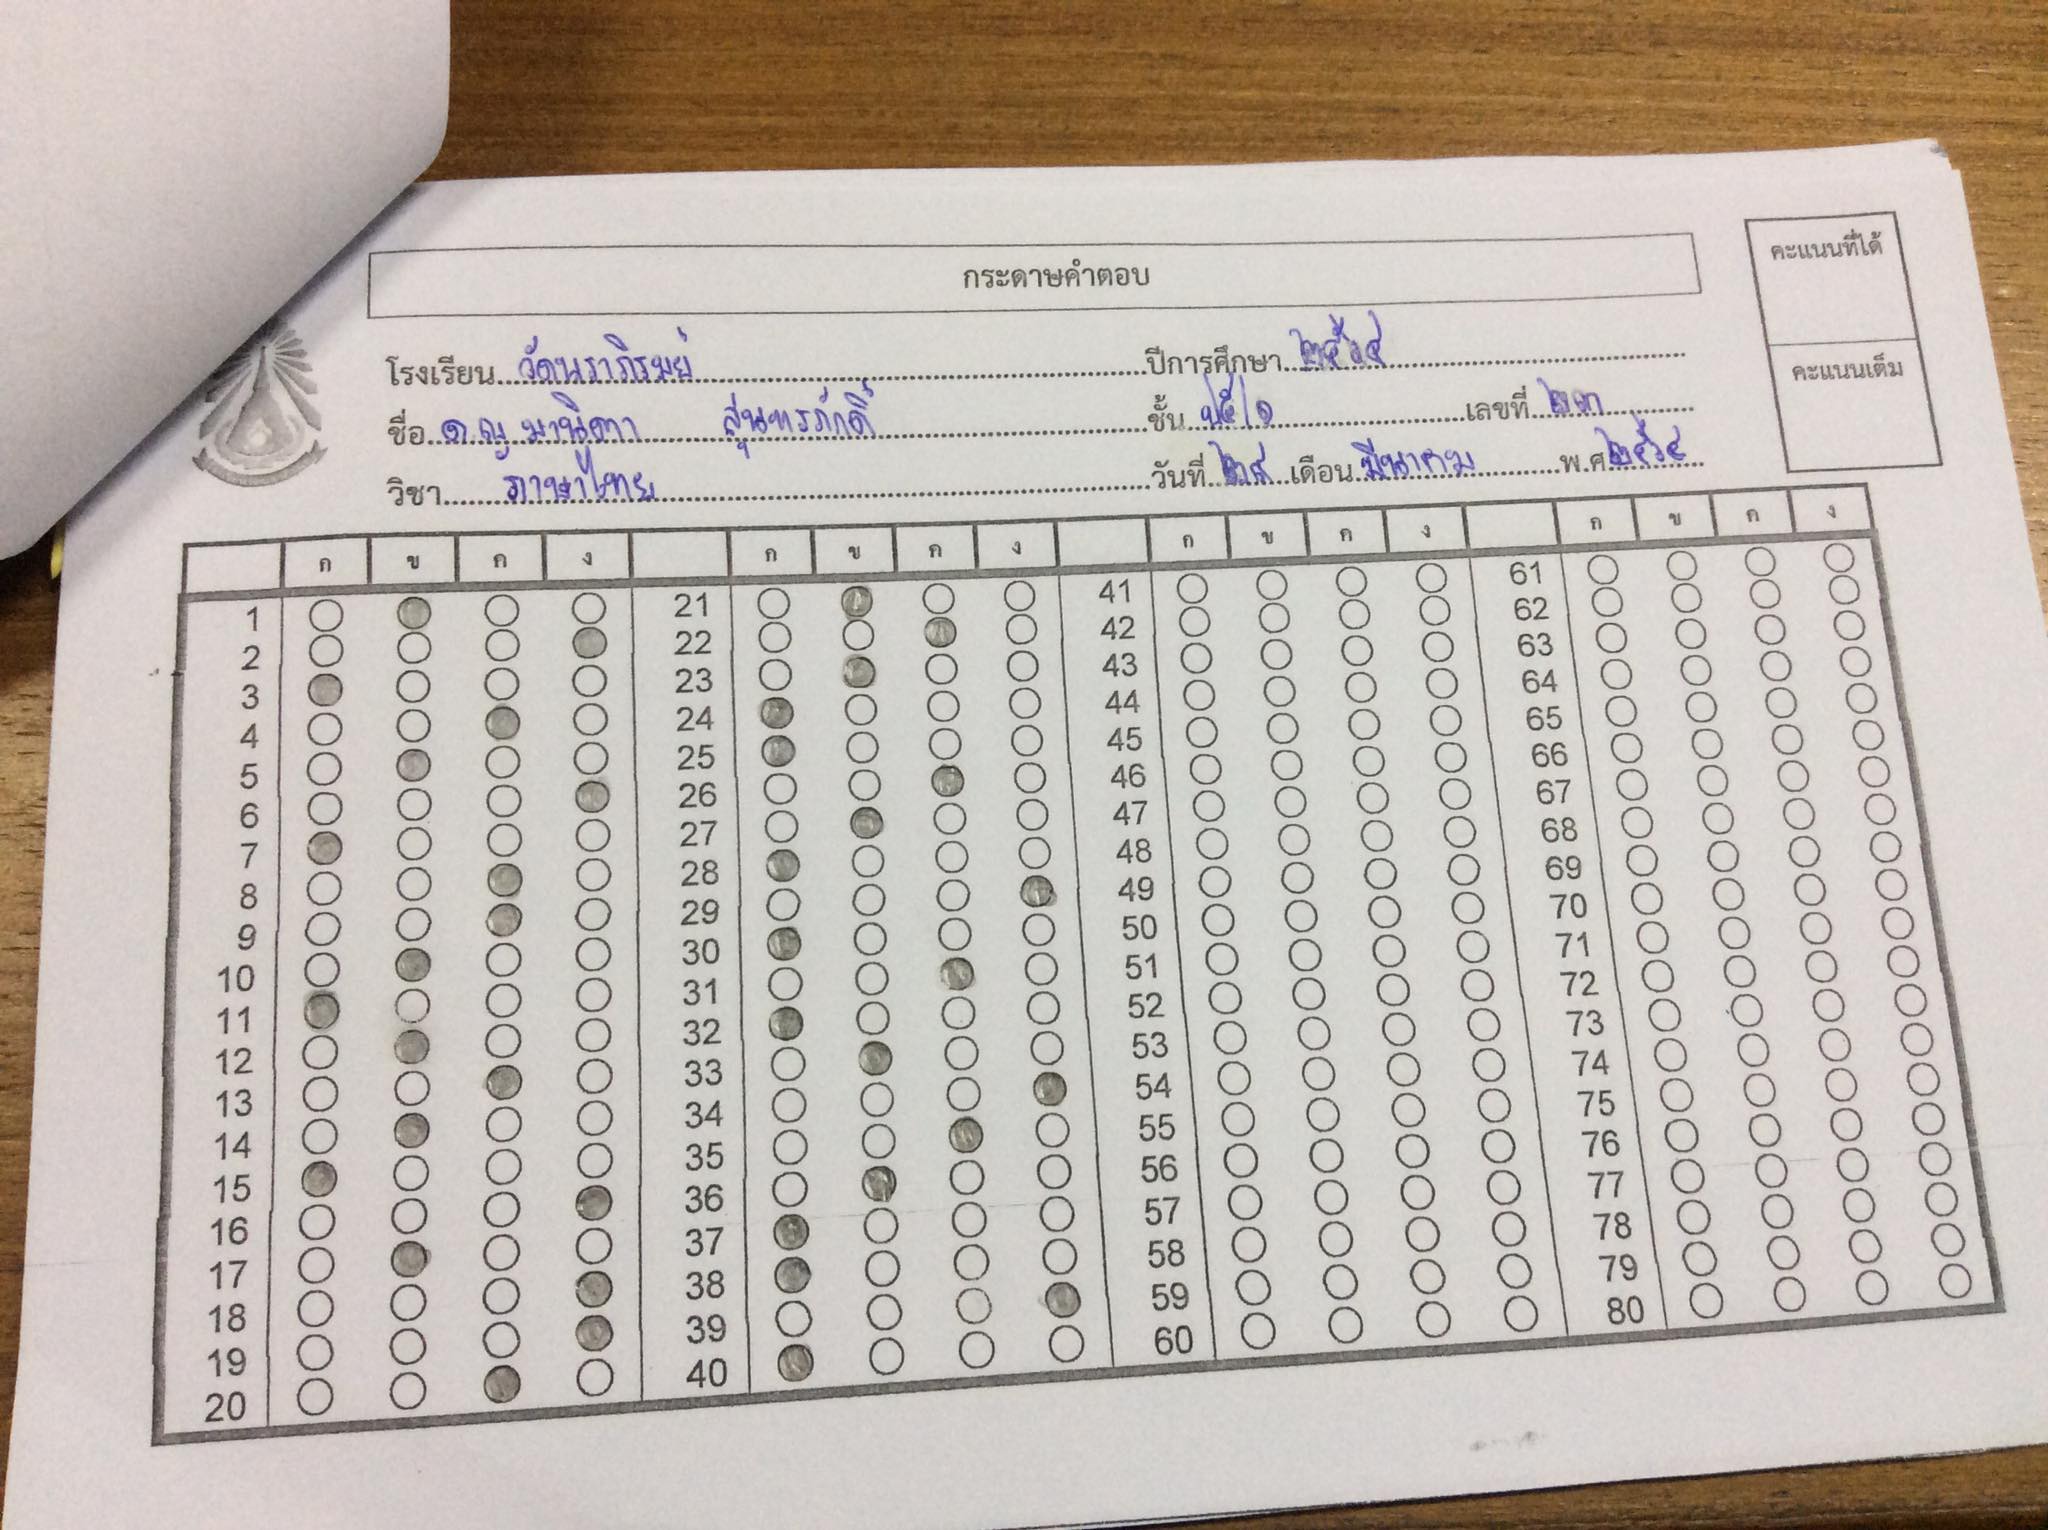 กระดาษคำตอบ
คะแนนที่ได้
คะแนนเต็ม
โรงเรียน วัดนราภิรมย์ ปีการศึกษา ๒๕๖๔
ชื่อ ด.ญ มานิดา สุนทรภักดิ์ ชั้น ป๕/๑ เลขที่ ๒๓
วิชา ภาษาไทย วันที่ ๒๙ เดือน มีนาคม พ.ศ ๒๕๖๔
ก ข ค ง ก ข ค ง ก ข ค ง ก ข ค ง
1 21 41 61
2 22 42 62
3 23 43 63
4 24 44 64
5 25 45 65
6 26 46 66
7 27 47 67
8 28 48 68
9 29 49 69
10 30 50 70
11 31 51 71
12 32 52 72
13 33 53 73
14 34 54 74
15 35 55 75
16 36 56 76
17 37 57 77
18 38 58 78
19 39 59 79
20 40 60 80